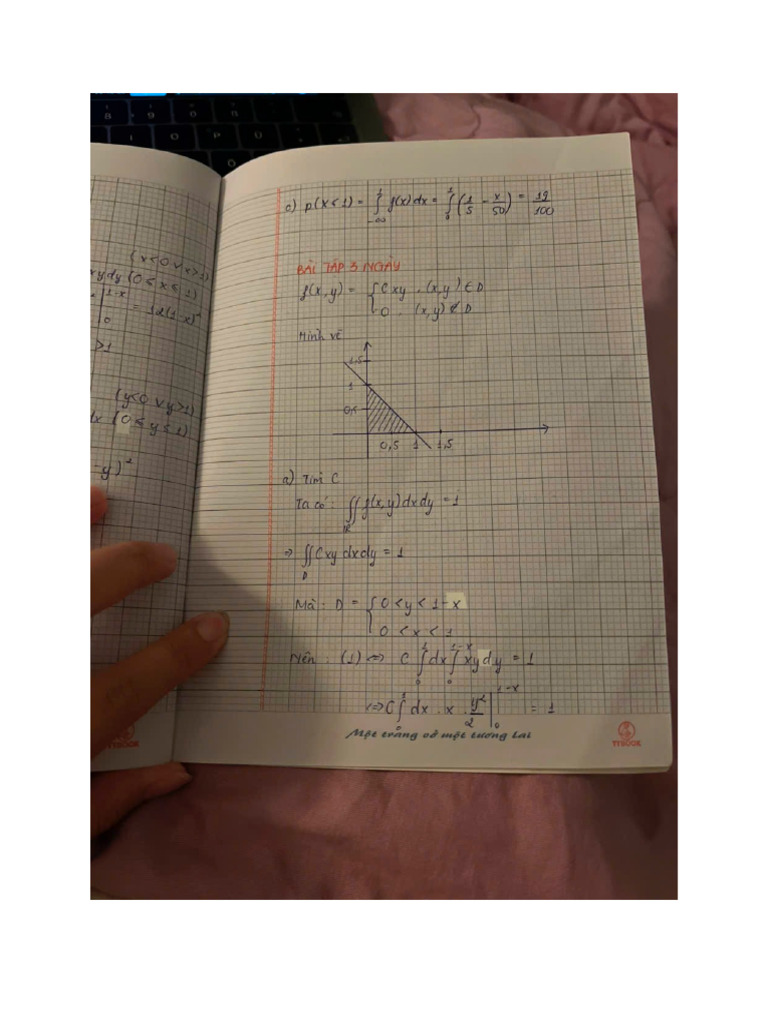 (x<0 ∨ x>1)
xydy (0 ≤ x ≤ 1)
|₀^{1-x} = 12(1-x)²
>1
(y<0 ∨ y>1)
dx (0 ≤ y ≤ 1)
-y)²
c) p(X<1) = ∫_{-∞}^{1} f(x)dx = ∫_{0}^{1} (1/5 - x/50) = 19/100
BÀI TẬP 3 NGÀY
f(x,y) = { Cxy , (x,y) ∈ D
0 , (x,y) ∉ D
Hình vẽ
1,5
1
0,5
0,5 1 1,5
a) Tìm C
Ta có: ∬_{R} f(x,y)dxdy = 1
⇒ ∬_{D} Cxy dxdy = 1
Mà: D = { 0 < y < 1-x
0 < x < 1
Nên : (1) ⇔ C ∫_{0}^{1} dx ∫_{0}^{1-x} xydy = 1
⇔ C ∫_{0}^{1} dx . x . y²/2 |₀^{1-x} = 1
Một trang vở một tương lai
TYBOOK